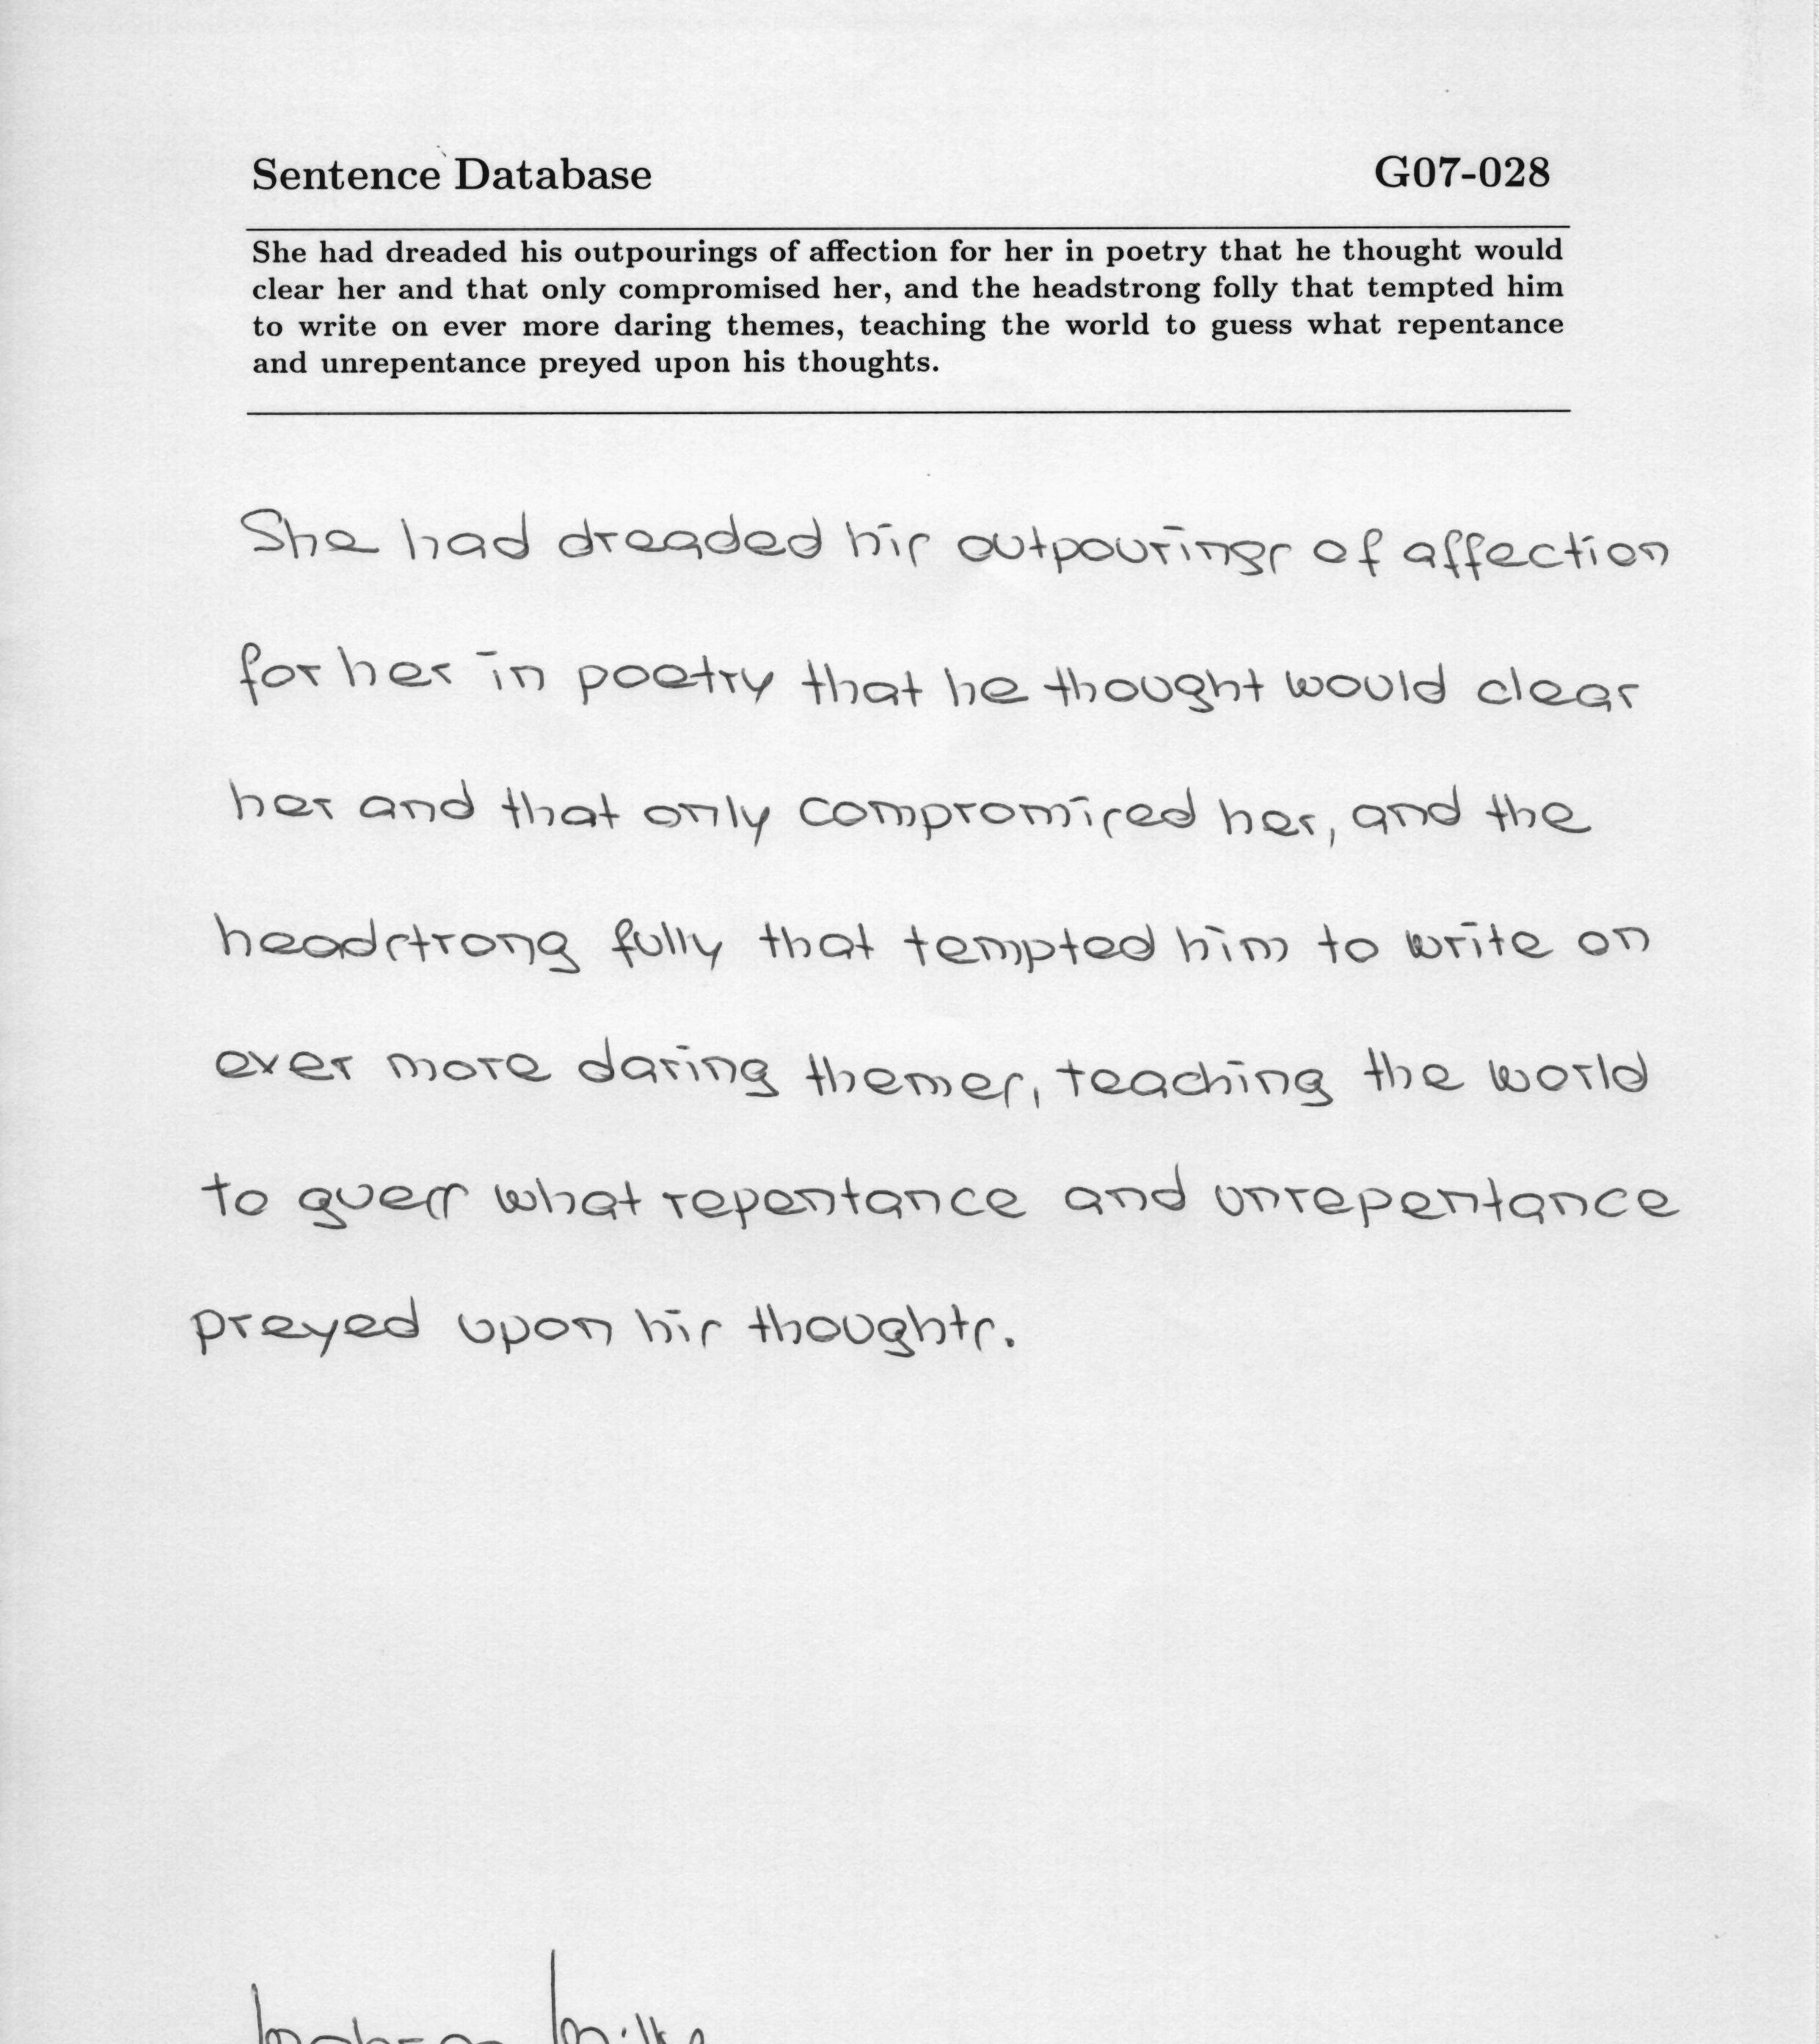 Sentence Database G07-028
She had dreaded his outpourings of affection for her in poetry that he thought would
clear her and that only compromised her, and the headstrong folly that tempted him
to write on ever more daring themes, teaching the world to guess what repentance
and unrepentance preyed upon his thoughts.
She had dreaded his outpourings of affection
for her in poetry that he thought would clear
her and that only compromised her, and the
headstrong fully that tempted him to write on
ever more daring themes, teaching the world
to guess what repentance and unrepentance
preyed upon his thoughts.